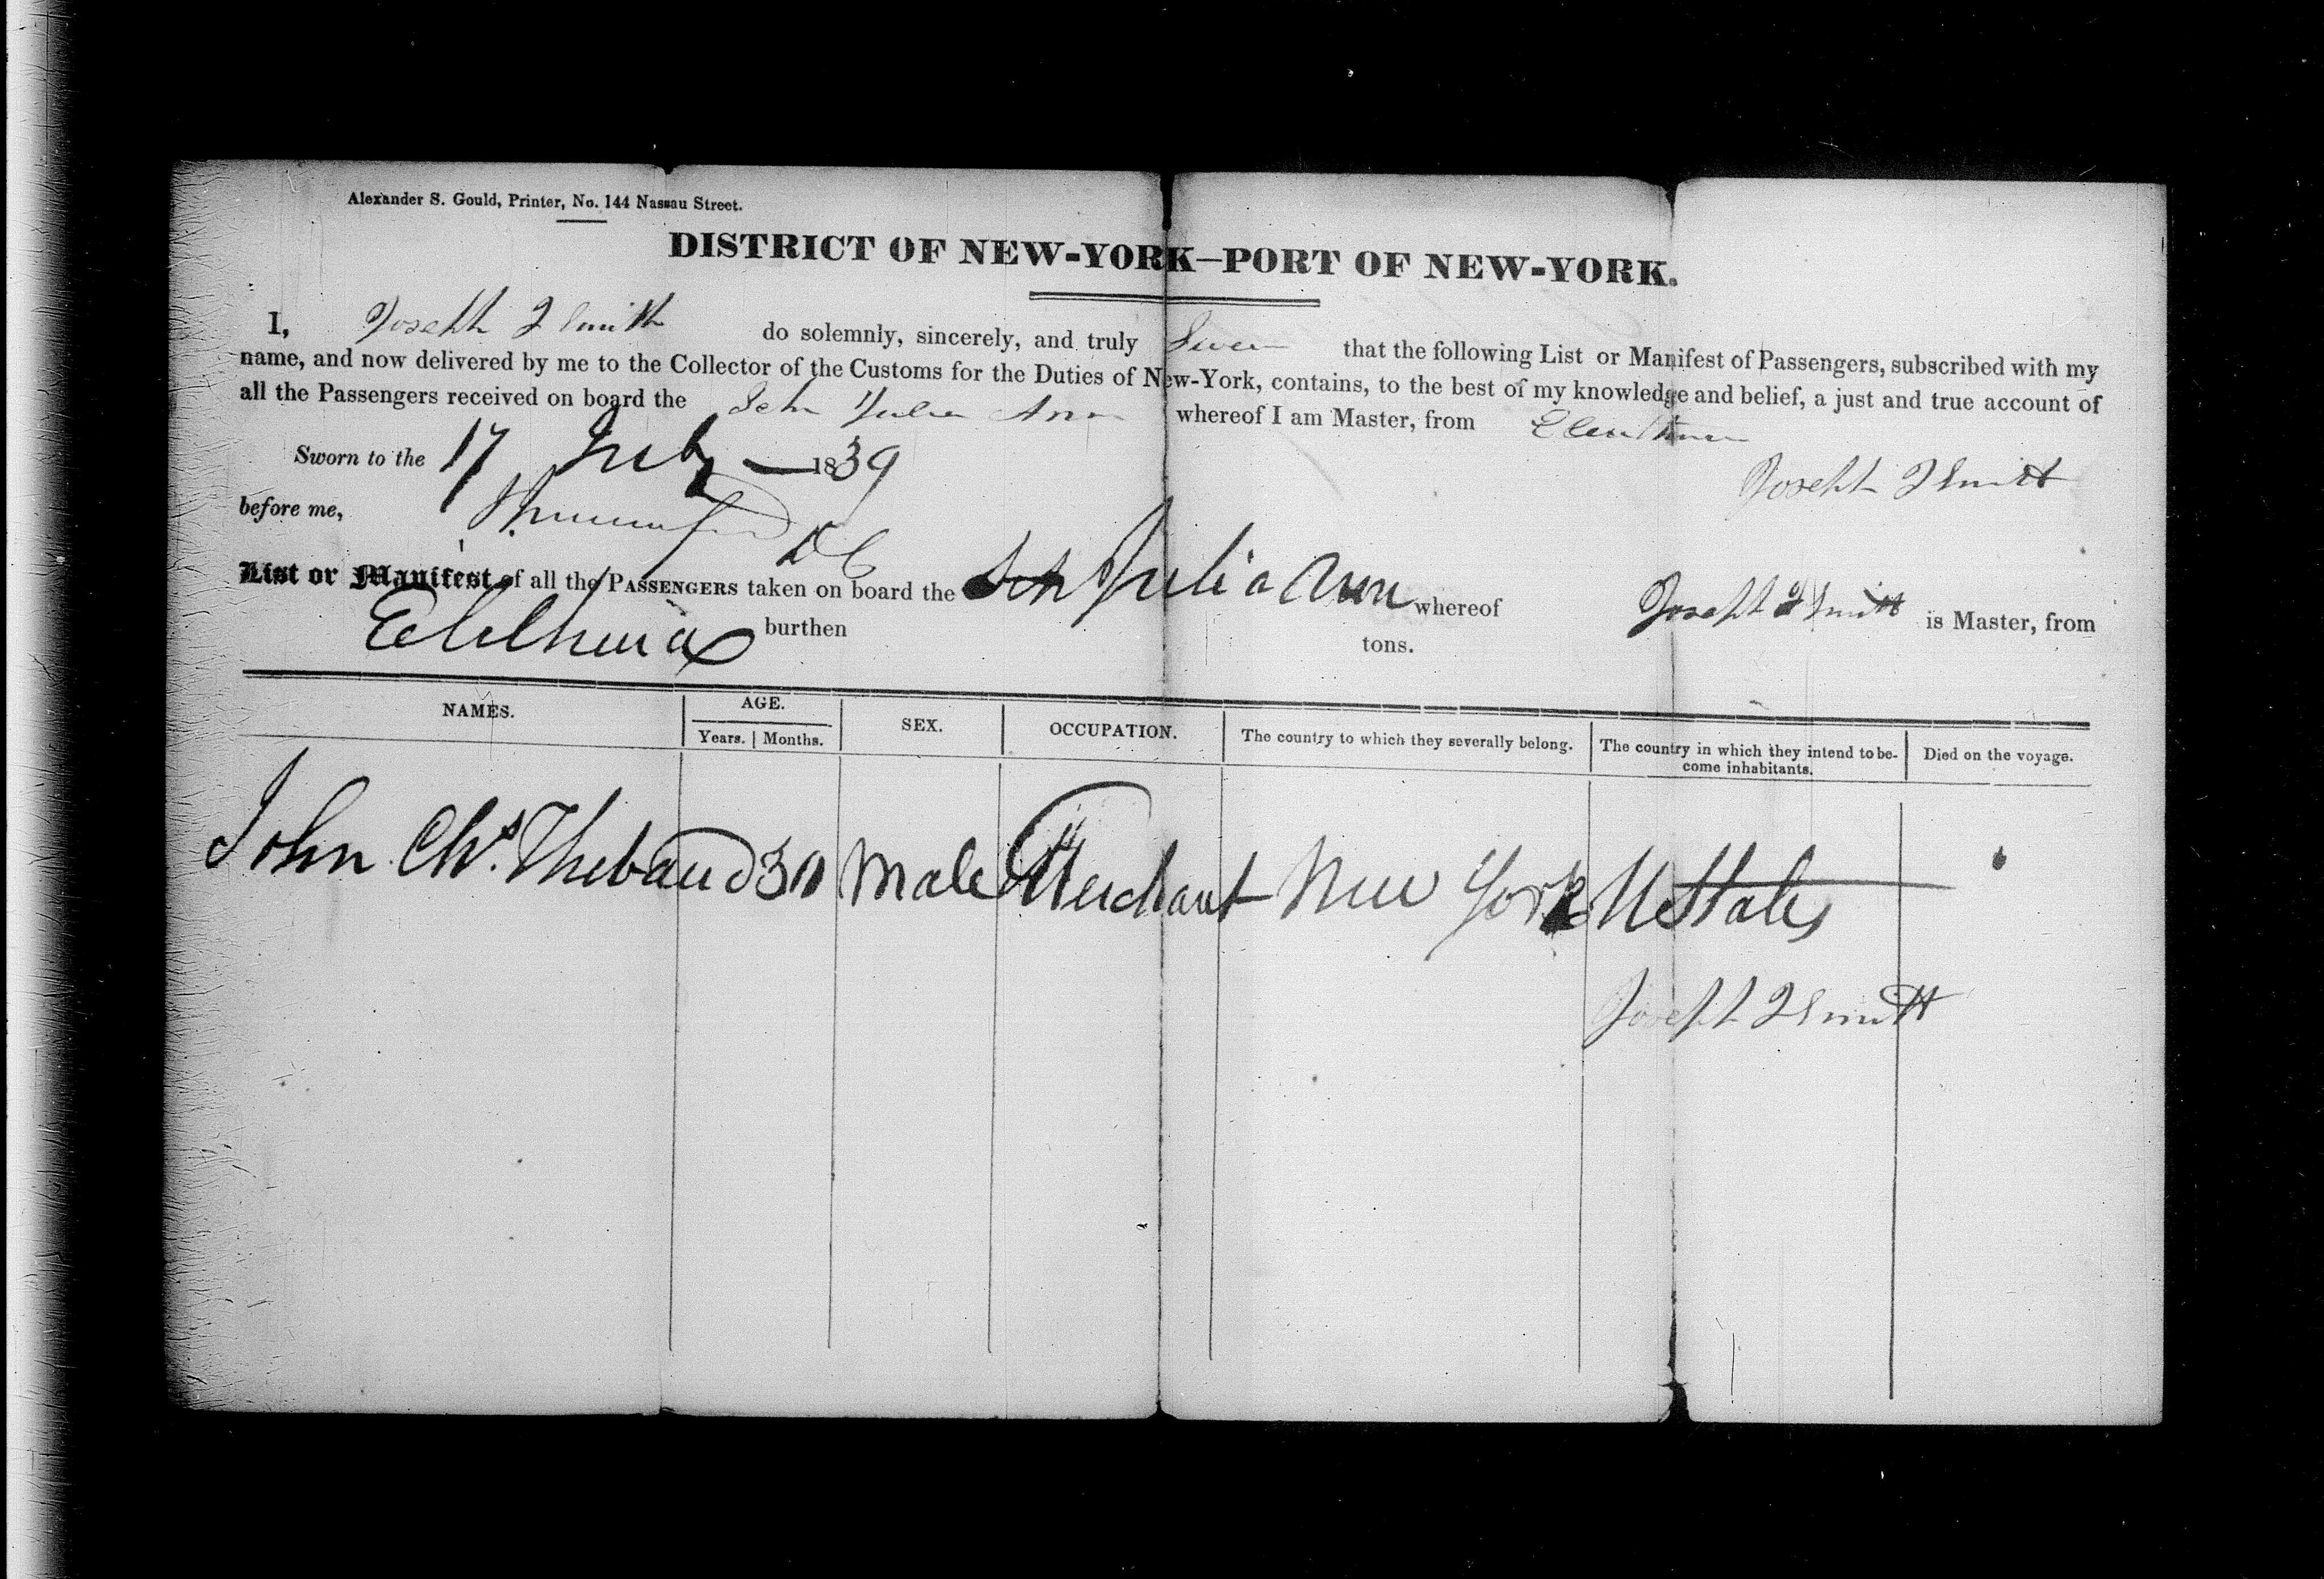 Alexander S. Gould, Printer, No. 144 Nassau Street.
DISTRICT OF NEW-YORK—PORT OF NEW-YORK.
I, Joseph Smith do solemnly, sincerely, and truly that the following List or Manifest of Passengers, subscribed with my
name, and now delivered by me to the Collector of the Customs for the Duties of New-York, contains, to the best of my knowledge and belief, a just and true account of
all the Passengers received on board the Sch Julia Ann whereof I am Master, from
Sworn to the 17 July — 1839
Joseph Smith
before me,
D C
List or Manifest of all the PASSENGERS taken on board the Sch Julia Ann whereof Joseph Smith is Master, from
burthen tons.
NAMES. AGE. SEX. OCCUPATION. The country to which they severally belong. The country in which they intend to be- Died on the voyage.
Years. | Months. come inhabitants.
John Chs. Thebaud 30 Male Merchant New York U States
Joseph Smith